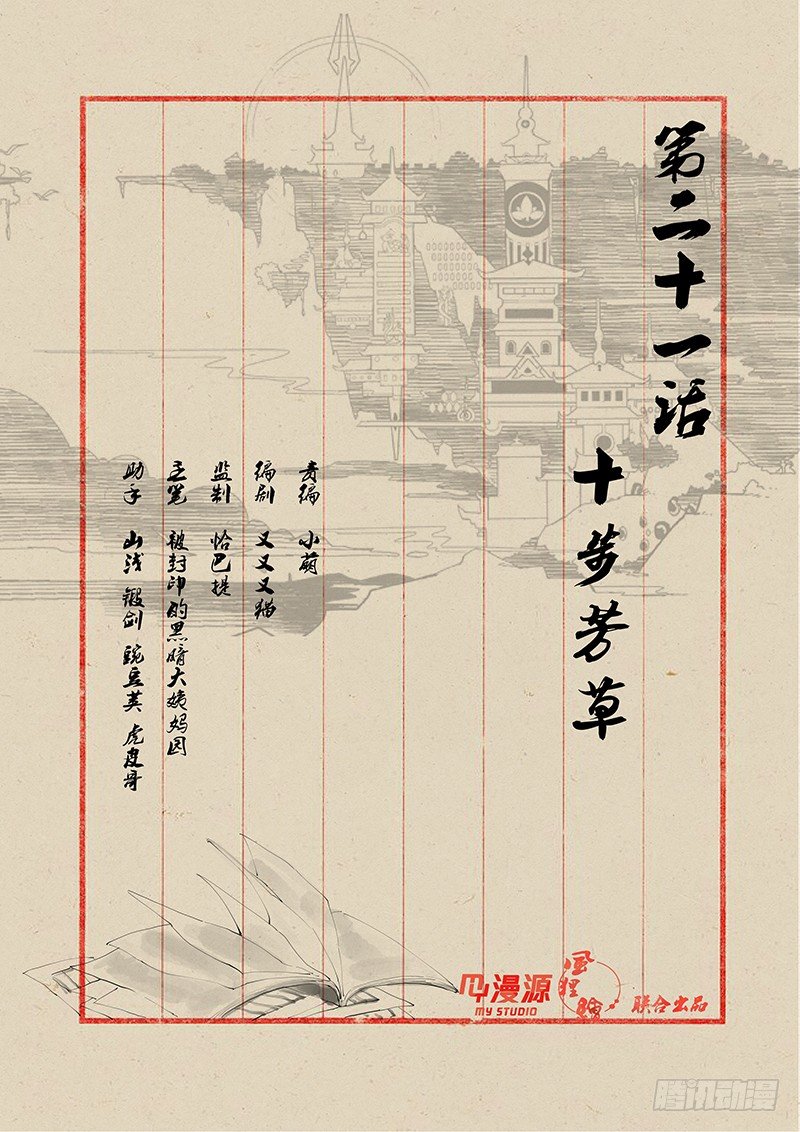 第二十一话
十步芳草
责编 小萌
编剧 又又又猫
监制 恰巴提
主笔 被封印的黑暗大姨妈园
助手 山浅 锻剑 豌豆荚 虎皮哥
漫源
MY STUDIO
联合出品
腾讯动漫